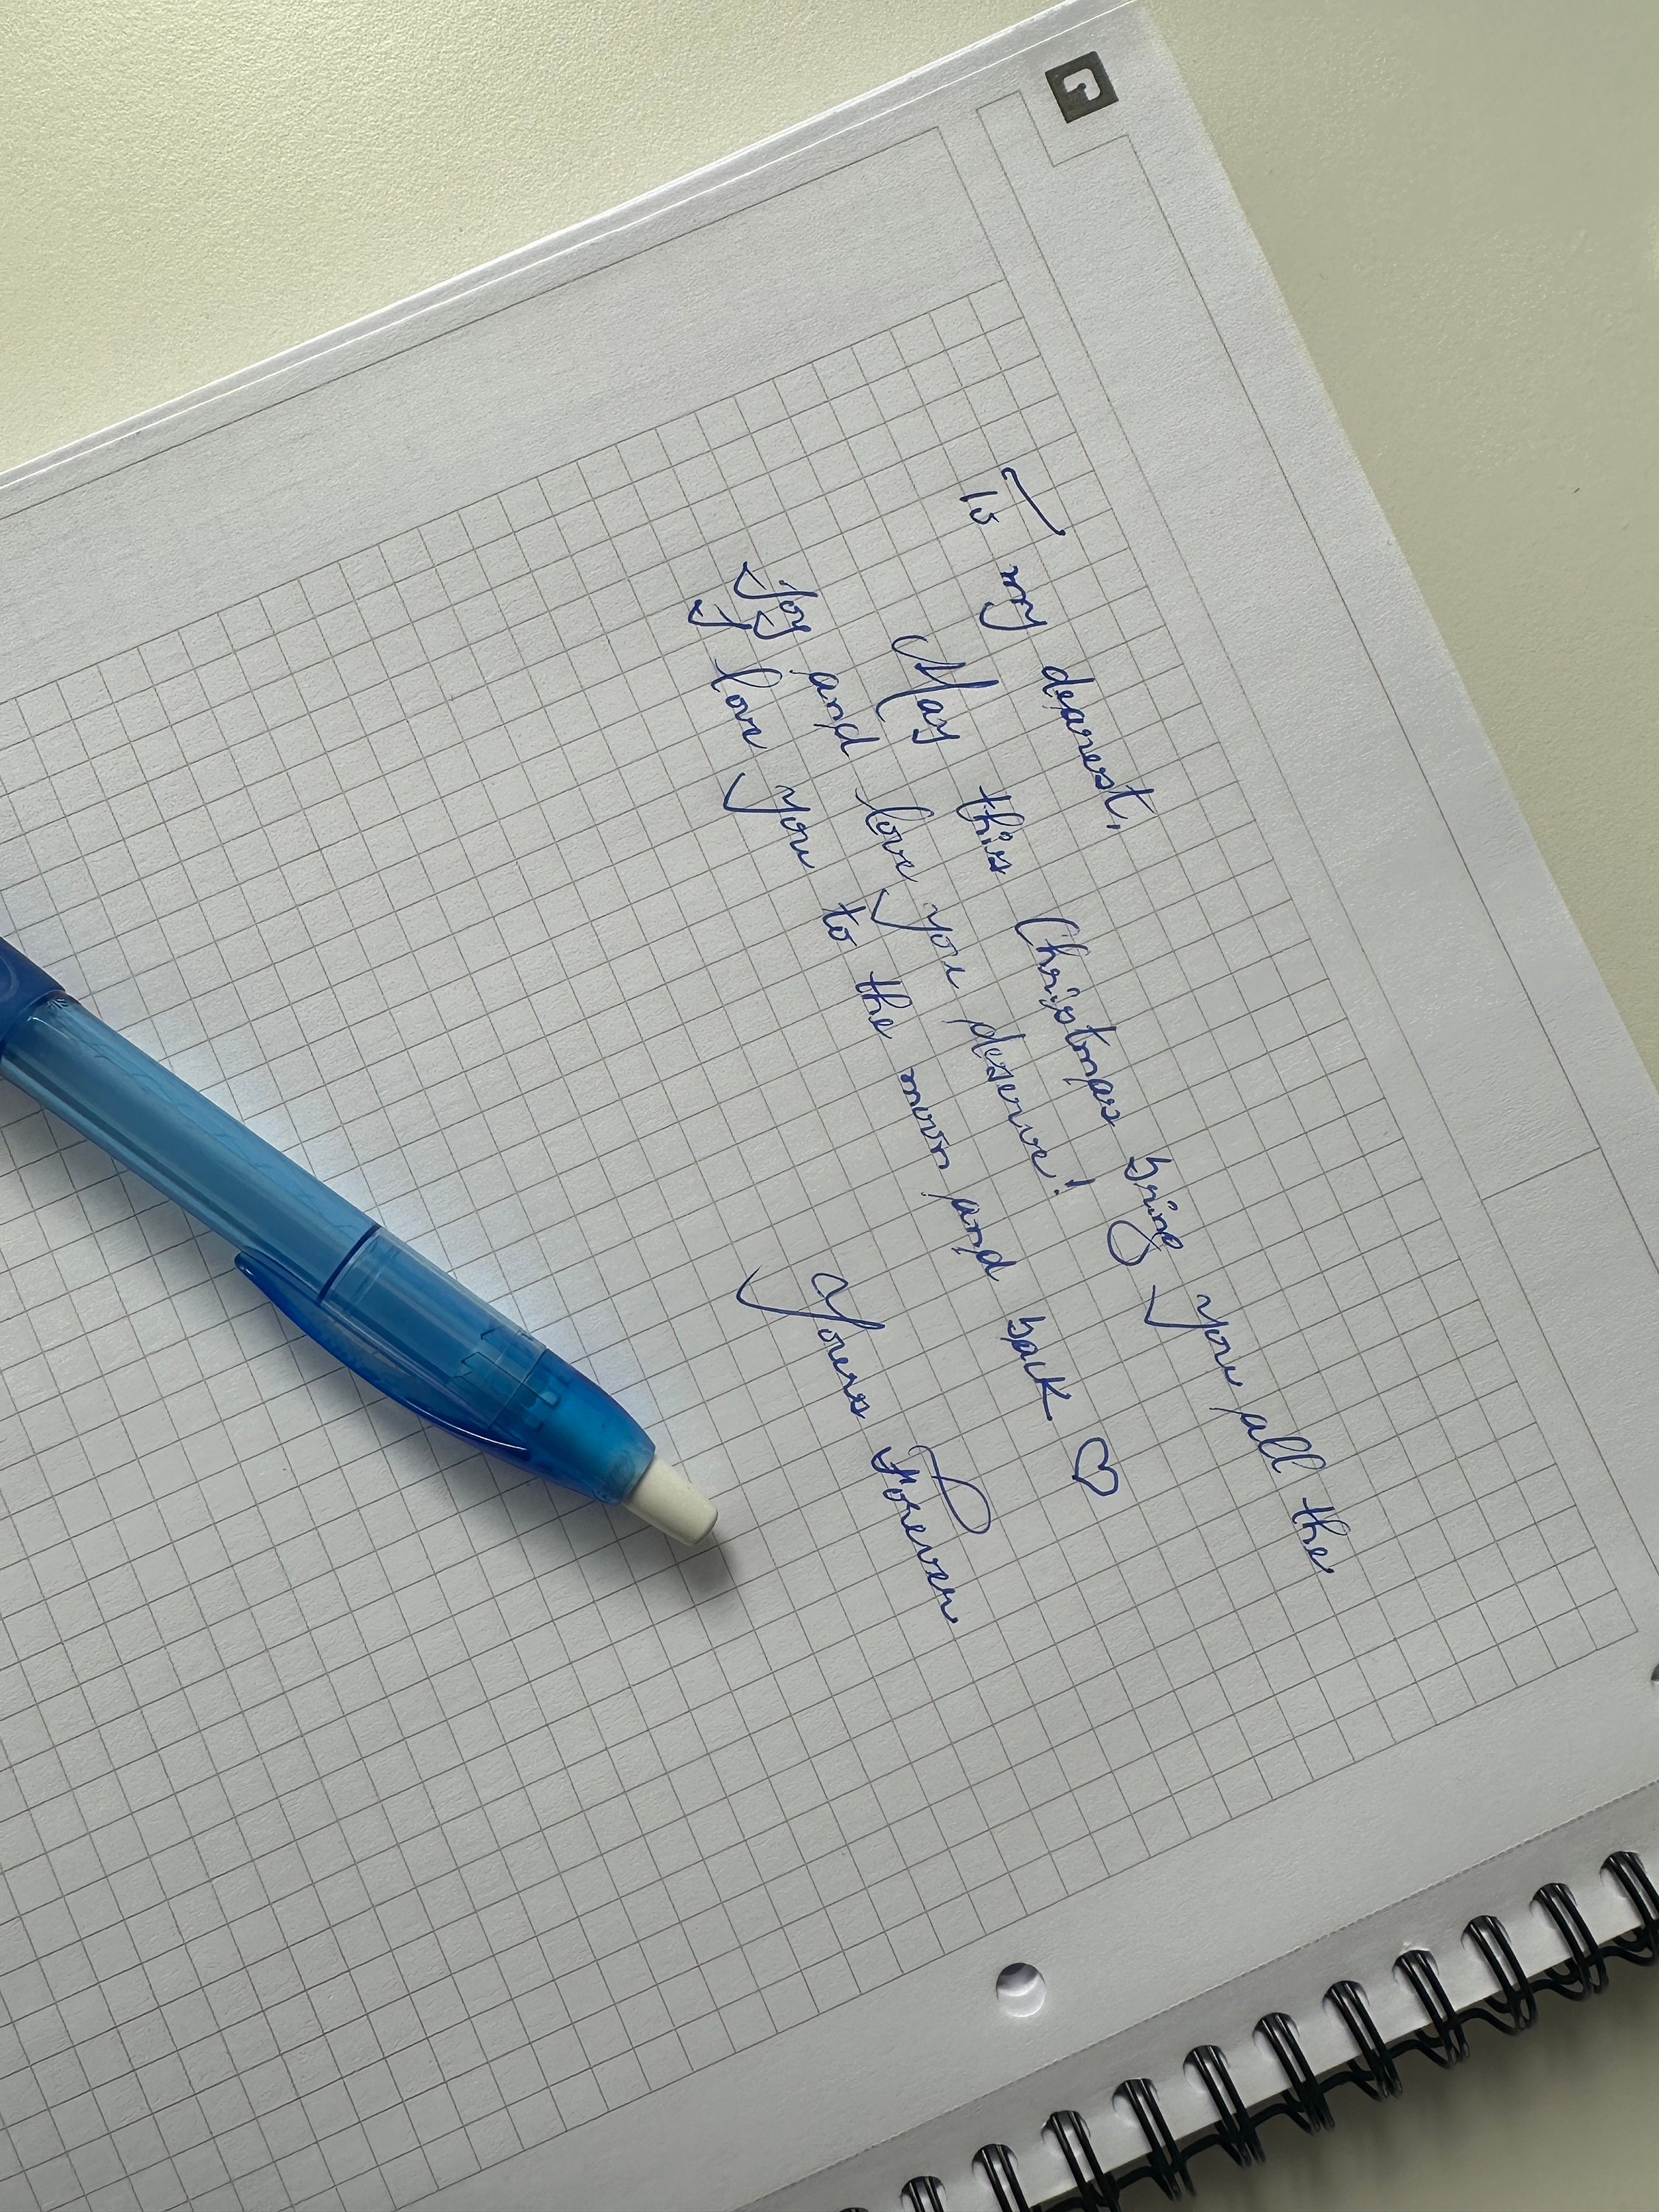 To my dearest,
May this Christmas bring you all the
Joy and love you deserve!
I love you to the moon and back ♡
Yours Forever